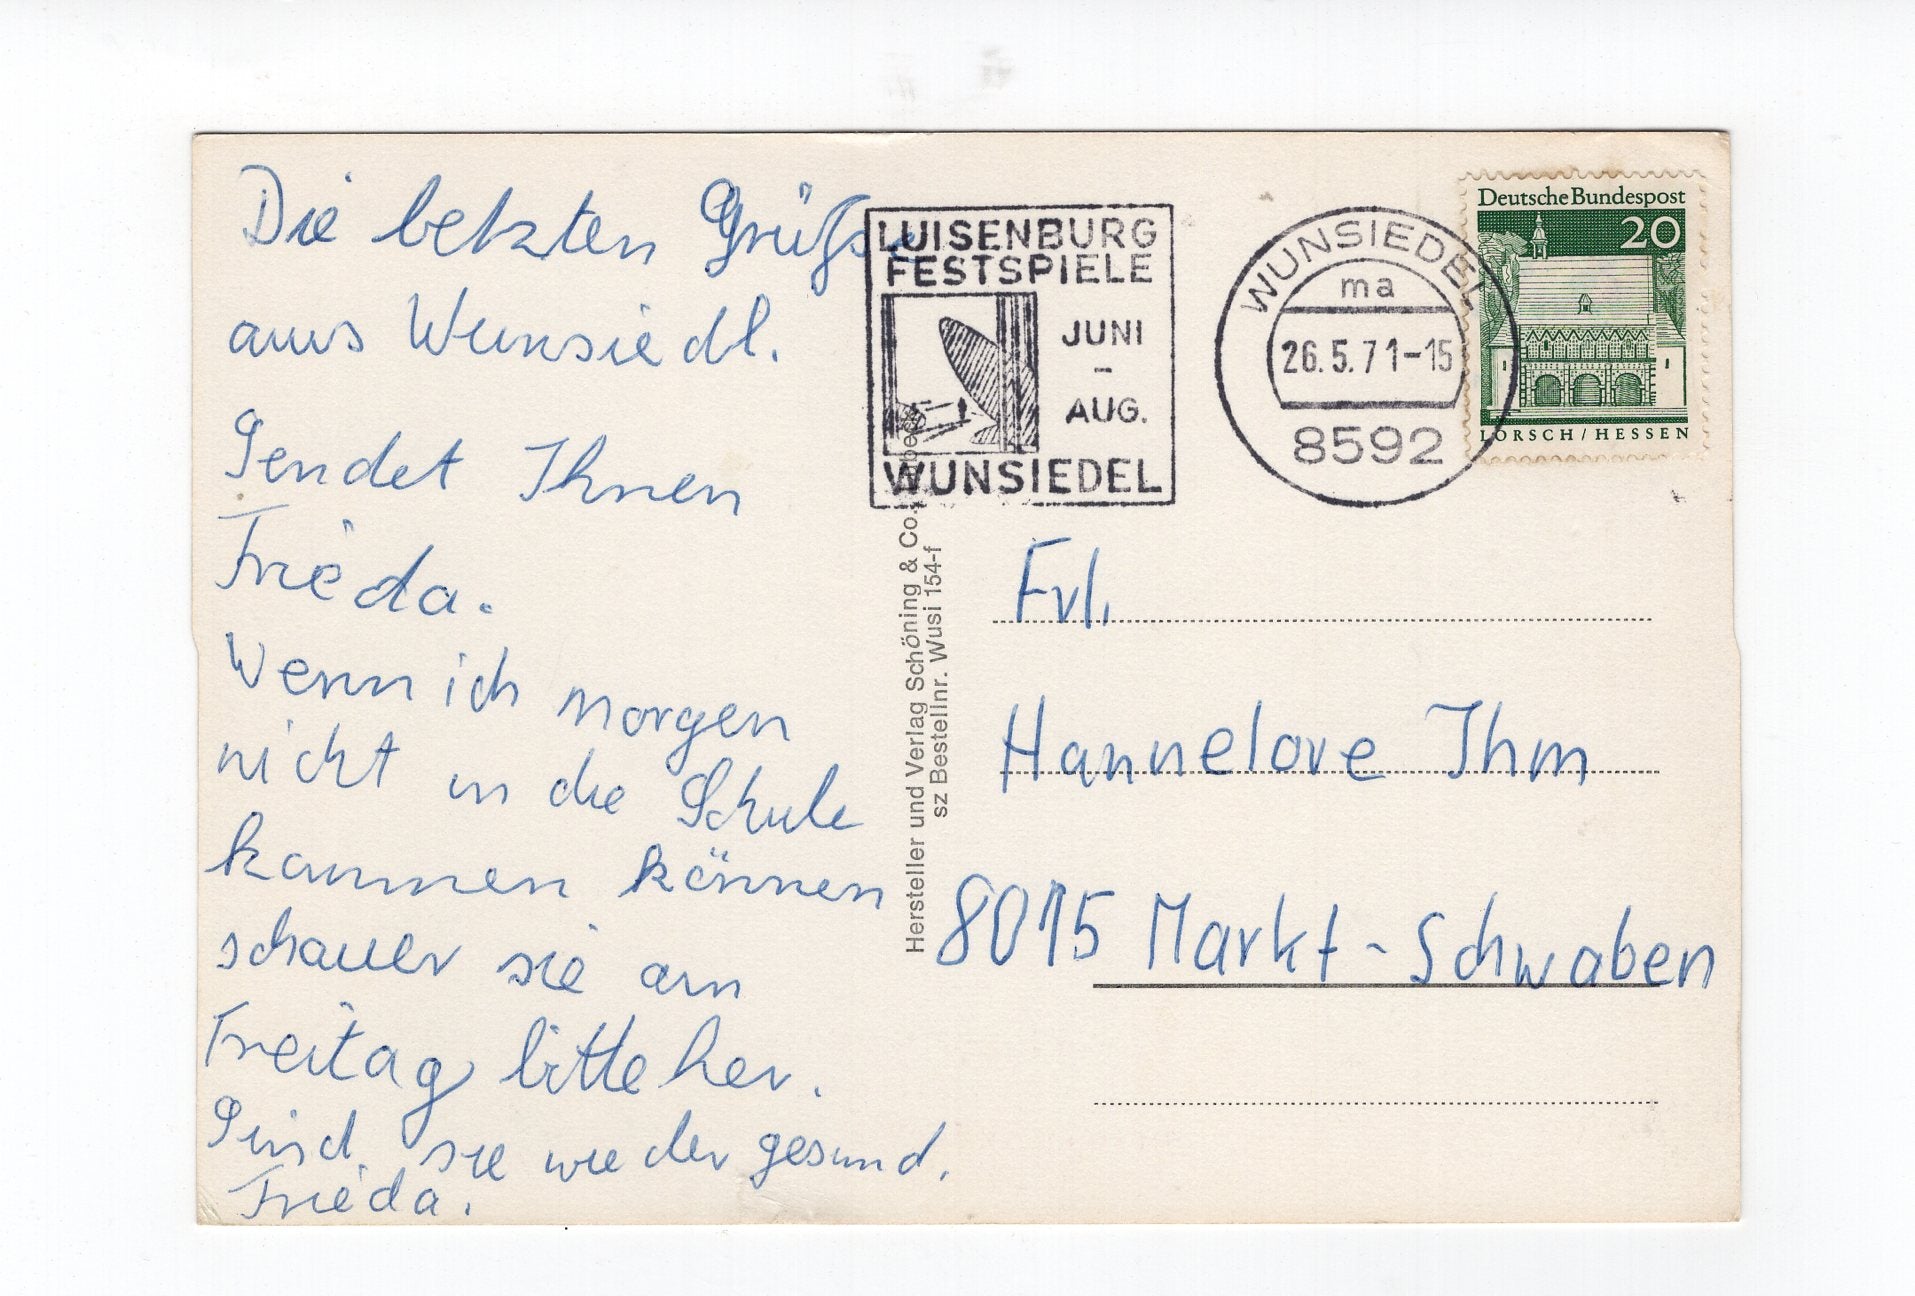 Die letzten Grüße
aus Wunsiedl.
Sendet Ihnen
Frieda.
Wenn ich morgen
nicht in die Schule
kommen können
schauen sie am
Freitag bitte her.
Sind sie wieder gesund.
Frieda.
LUISENBURG
FESTSPIELE
JUNI
-
AUG.
WUNSIEDEL
WUNSIEDEL
ma
26.5.71-15
8592
Deutsche Bundespost
20
LORSCH/HESSEN
Hersteller und Verlag Schöning & Co.
sz Bestellnr. Wusi 154-f
Frl.
Hannelore Ihm
8015 Markt-Schwaben